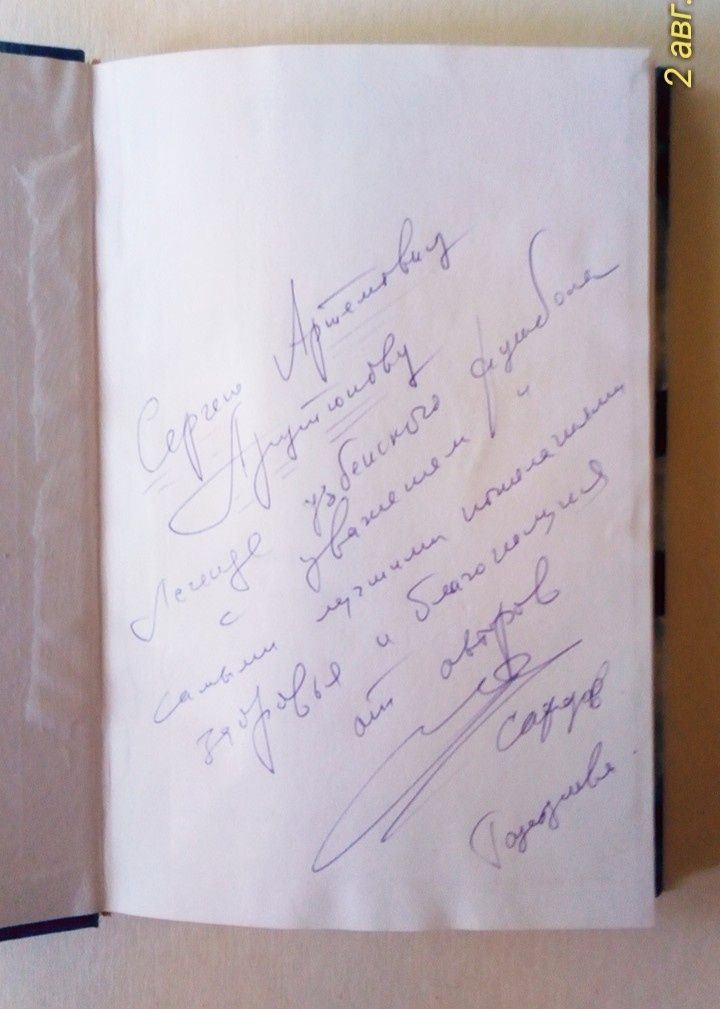 2 авг.
Сергею Артемовичу
Арутюнову
Легенде узбекского футбола
с уважением и
самыми лучшими пожеланиями
здоровья и благополучия
от авторов
Сафаров